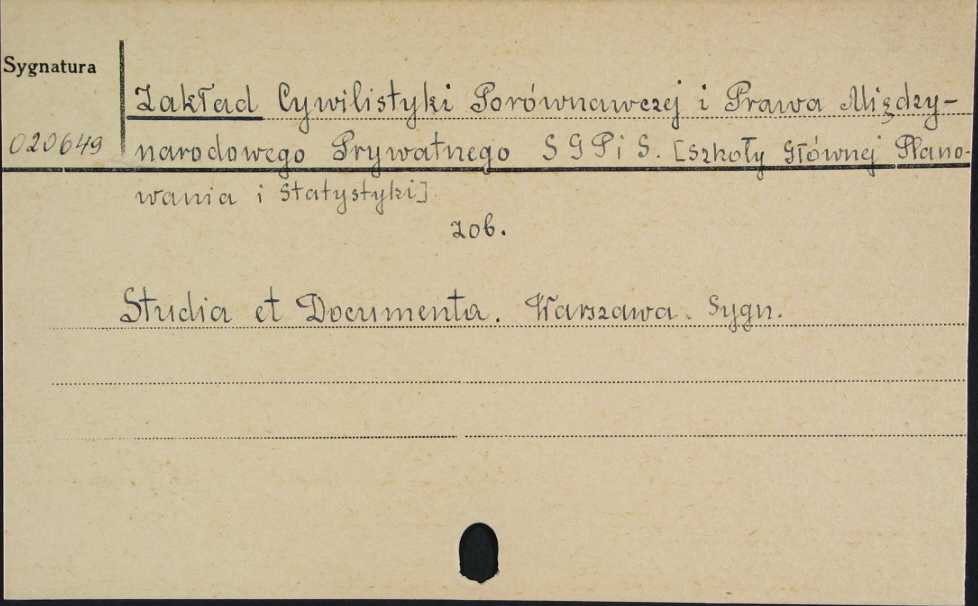 Sygnatura
Zakład Cywilistyki Porównawczej i Prawa Między-
020649
narodowego Prywatnego SGPiS. [Szkoły Głównej Plano-
wania i Statystyki]
zob.
Studia et Documenta. Warszawa. Sygn.